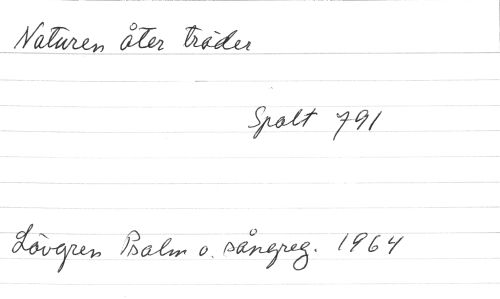 Naturen åter träder
Spalt 791
Lövgren Psalm o. sångreg. 1964